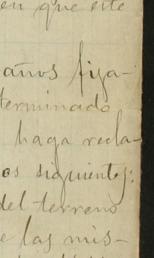 en que este
años fija-
terminado
haga recla-
os siguientes:
del terreno
e las mis-